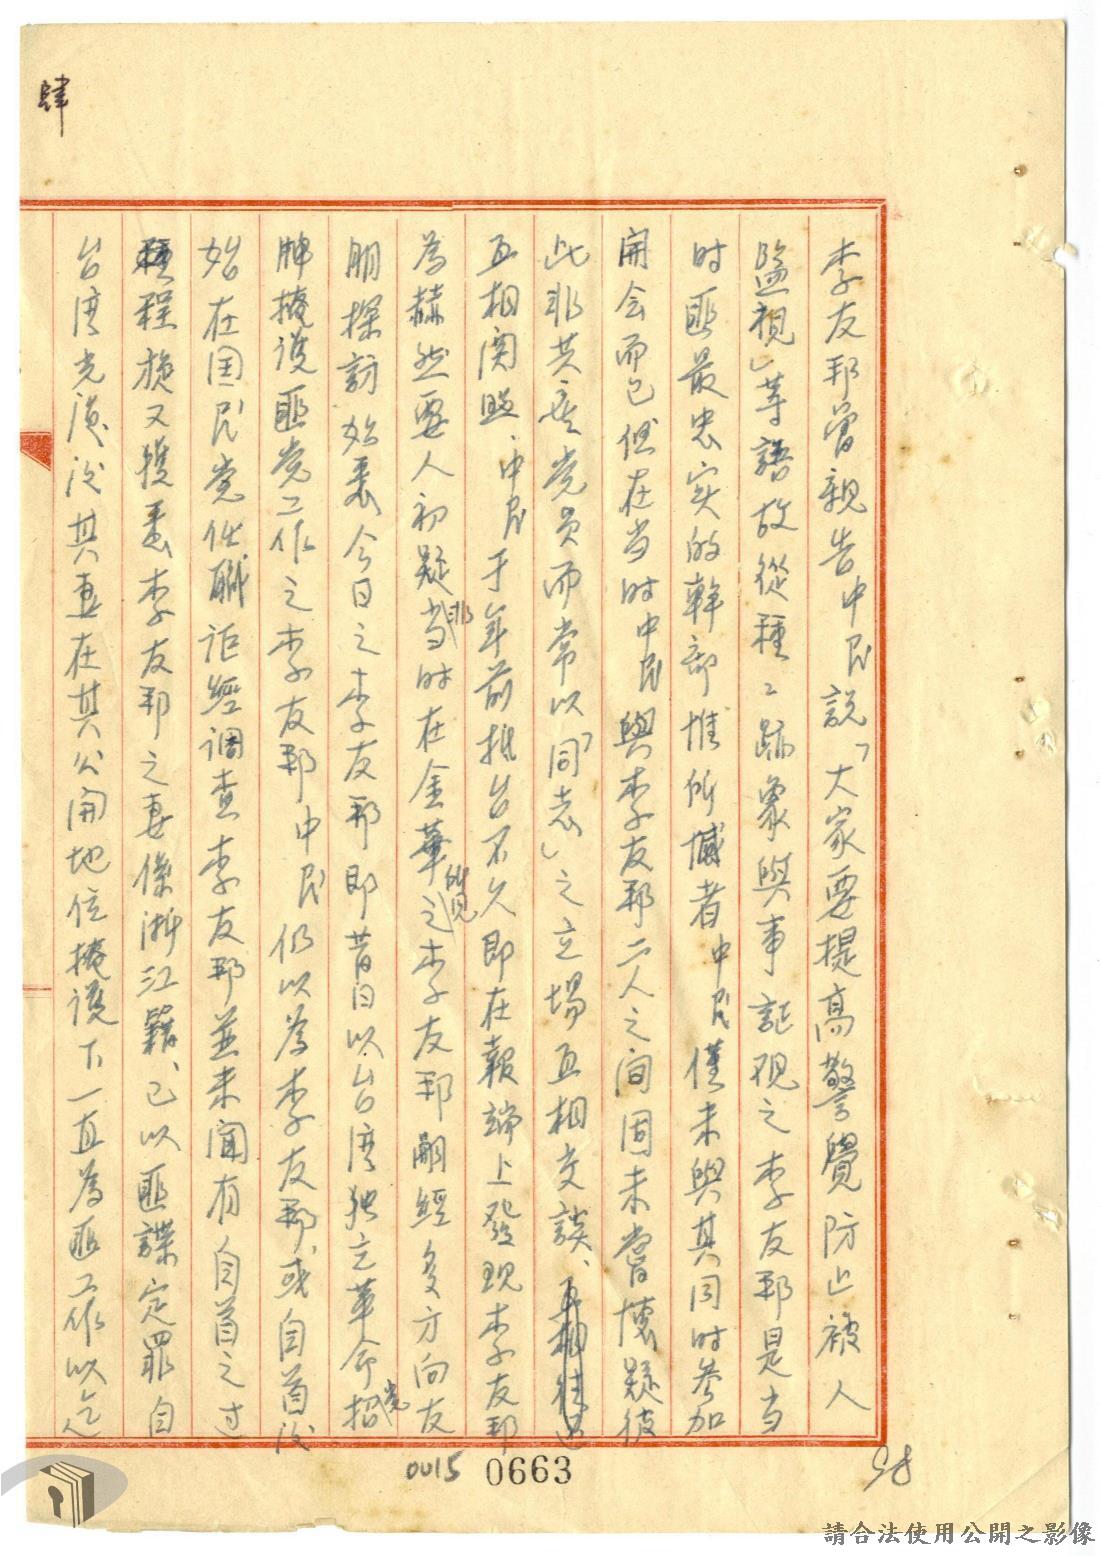 肆
李友邦曾親告中民説「大家要提高警覺防止被人
監視」等語故從種々跡象與事証視之李友邦是当
时匪最忠实的幹部惟所憾者中民僅未與其同时參加
開会而已但在当时中民與李友邦二人之间固未嘗懷疑彼
此非共產党员而常以「同志」之立場互相交談、互相
互相関照、中民于年前抵台不久即在報端上發现李友邦
為赫然要人初疑非当时在金華所见之李友邦嗣經多方向友
朋探訪始悉今日之李友邦即昔日以台湾独立革命党招
牌掩護匪党工作之李友邦中民仍以為李友邦、或自首后
始在国民党任職詎經调查李友邦並未聞有自首之过
程旋又獲悉李友邦之妻係浙江籍、已以匪諜定罪自
台湾光復后其妻在其公開地位掩護下一直為匪工作以迄
0015 0663
98
請合法使用公開之影像